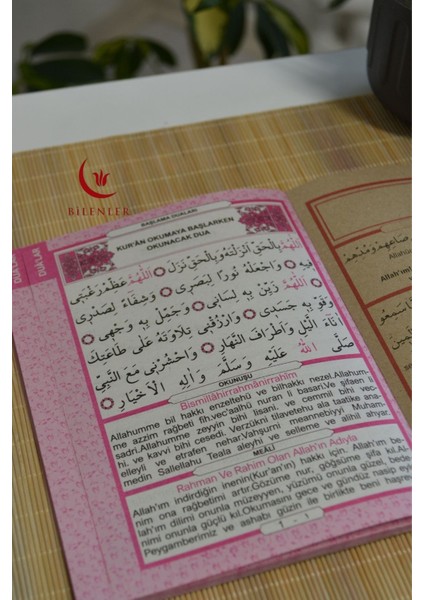 BİLENLER
BAŞLAMA DUALARI
DUALAR
KUR'ÂN OKUMAYA BAŞLARKEN
OKUNACAK DUA
اَللّٰهُمَّ بِالْحَقِّ اَنْزَلْتَهُ وَبِالْحَقِّ نَزَلَ اَللّٰهُمَّ عَظِّمْ رَغْبَتِى
فِيهِ وَاجْعَلْهُ نُورًا لِبَصَرِى وَشِفَاءً لِصَدْرِى
اَللّٰهُمَّ زَيِّنْ بِهِ لِسَانِى وَجَمِّلْ بِهِ وَجْهِى
وَقَوِّ بِهِ جَسَدِى وَارْزُقْنِى تِلَاوَتَهُ عَلَى طَاعَتِكَ
اٰنَاءَ الَّيْلِ وَاَطْرَافَ النَّهَارِ وَاحْشُرْنِى مَعَ النَّبِيِّ
صَلَّى اللّٰهُ عَلَيْهِ وَسَلَّمَ وَاٰلِهِ الْاَخْيَارِ
OKUNUŞU
Bismillâhirrahmânirrahîm
Allahumme bil hakkı enzeltehü ve bilhakkı nezel.Allahum-
me azzim rağbeti fih,vec'aalhü nuran li basari.Ve şifaen li
sadri.Allahumme zeyyin bihi lisani, ve cemmil bihi vec-
hi, ve kavvi bihi cesedi. Verzukni tilavetehu ala taatike ana-
elleyli ve etrafen nehar.Vehşurni meannebiyi
medin Sallellahü Teala aleyhi ve selleme ve alihil ahyar.
MEÂLİ
Rahman Ve Rahim Olan Allah'ın Adıyla
Allah'ım indirdiğin inenin(Kur'an'ın) hakkı için. Allah'ım be-
nim ona rağbetimi artır.Gözüme nur, göğsüme şifa kıl.Al-
lah'ım dilimi onunla müzeyyen, yüzümü onunla güzel, bedeni-
mi onunla güçlü kıl.Okumasını gece ve gündüz nasip eyle
Peygamberimiz ve ashabı güzin ile birlikte beni haşreyle
1